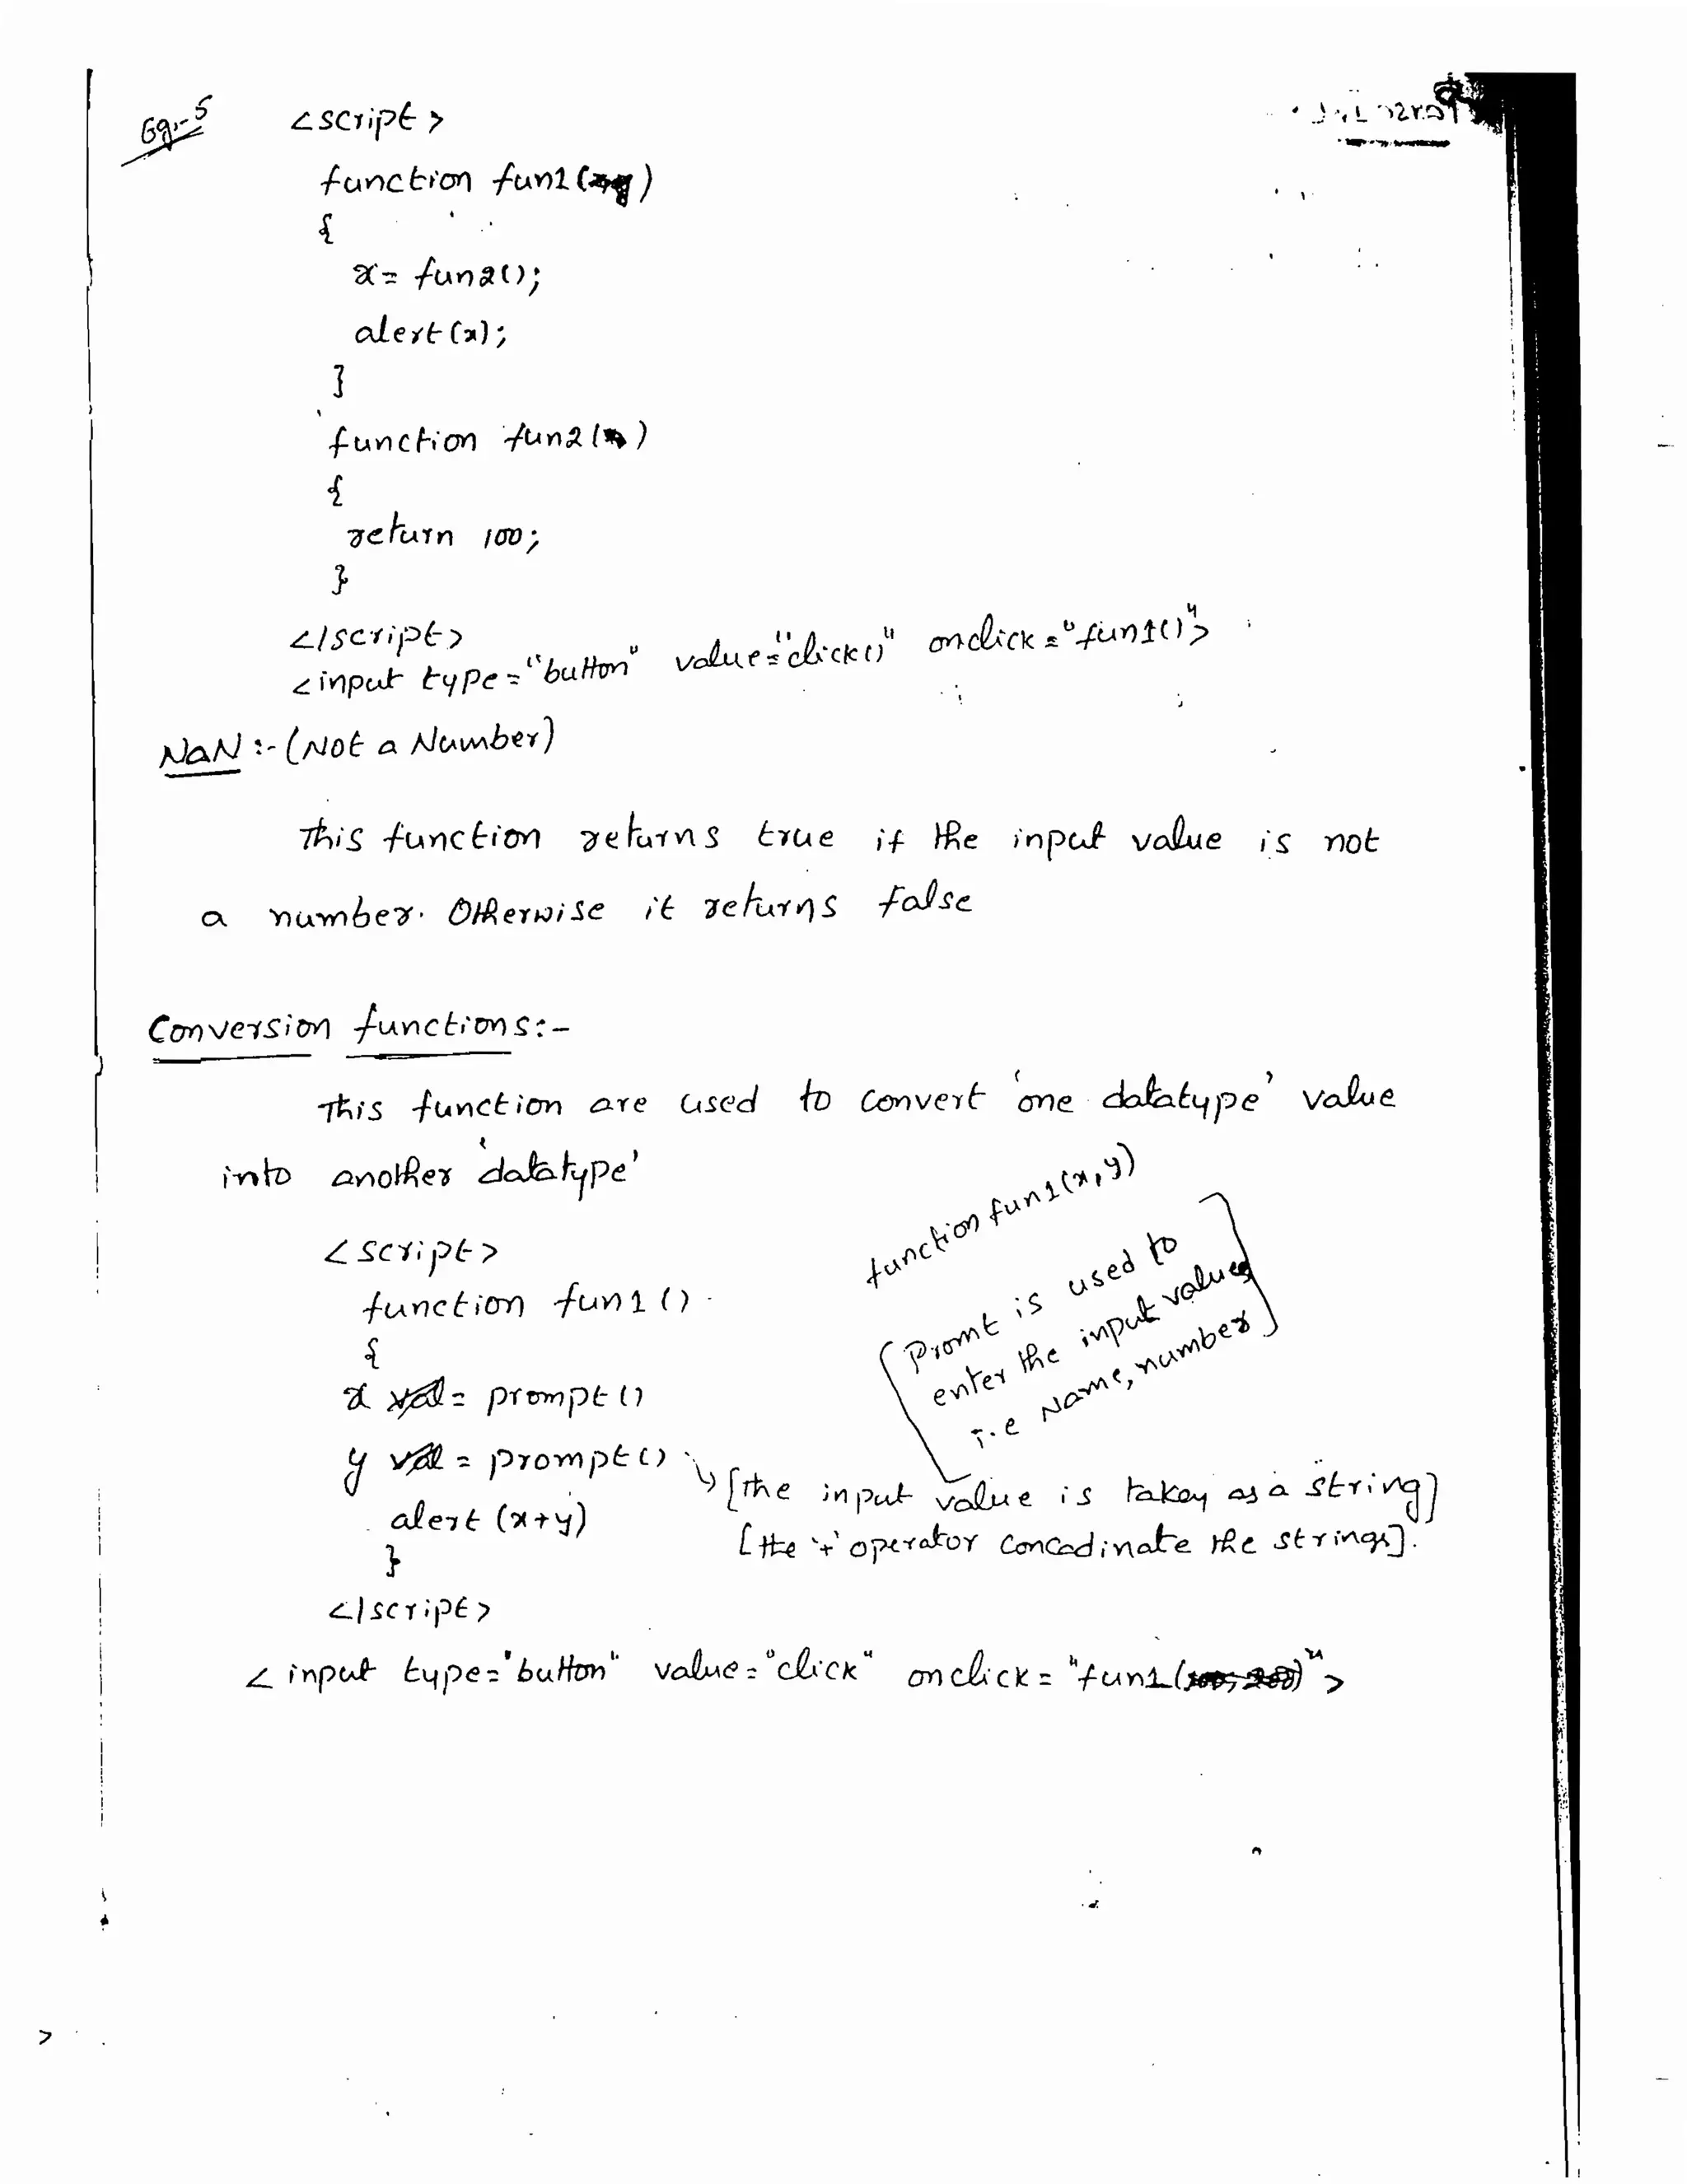 Eg:-5
<script>
function fun1()
{
x= fun2();
alert(x);
}
function fun2()
{
return 100;
}
</script>
<input type="button" value="click()" onclick="fun1()">
NaN :- (Not a Number)
This function returns true if the input value is not
a number. Otherwise it returns false
Conversion functions:-
This function are used to convert 'one datatype' value
into another 'datatype'
function fun1(x,y)
<script>
function fun1()
{
x = prompt()
y = prompt()
alert (x+y)
}
</script>
[Promt is used to
enter the input values
i.e Name, number]
[the input value is taken as a string]
[the '+' operator concadinate the strings].
<input type="button" value="click" onclick="fun1()">